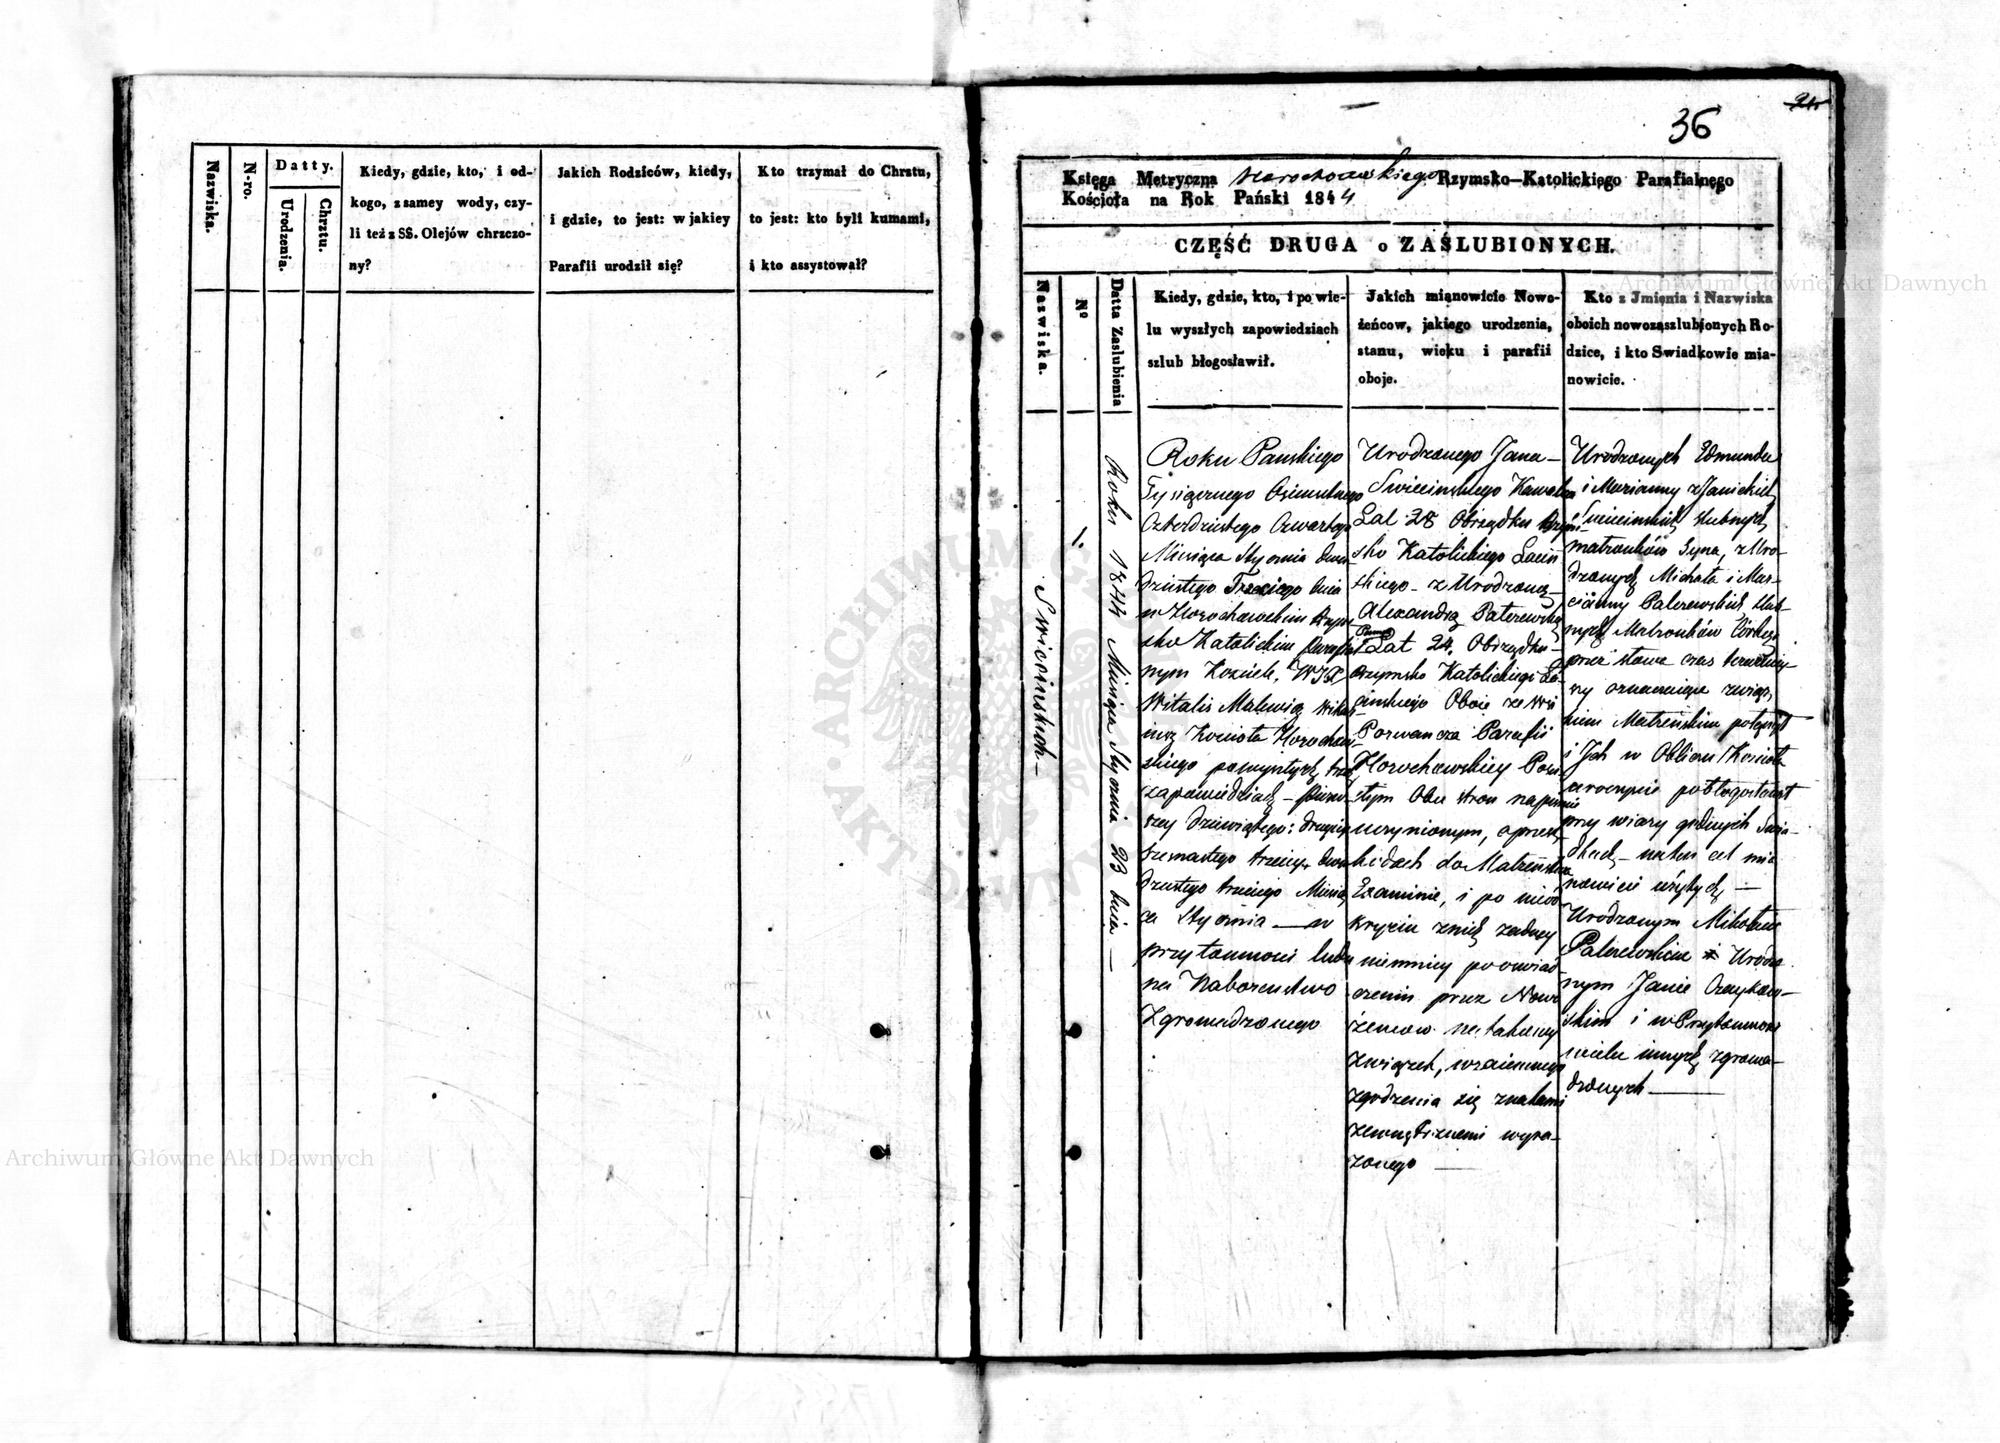 Nazwiska.
N-ro.
Datty.
Urodzenia.
Chrztu.
Kiedy, gdzie, kto, i od-
kogo, z samey wody, czy-
li też z SS. Olejów chrzczo-
ny?
Jakich Rodziców, kiedy,
i gdzie, to jest: w jakiey
Parafii urodził się?
Kto trzymał do Chrstu,
to jest: kto byli kumami,
i kto assystował?
36
Księga Metryczna Horochowskiego Rzymsko-Katolickiego Parafialnego
Kościoła na Rok Pański 1844
CZĘŚĆ DRUGA o ZAŚLUBIONYCH.
Nazwiska.
Nº
Datta Zaslubienia
Kiedy, gdzie, kto, i po wie-
lu wyszłych zapowiedziach
szlub błogosławił.
Jakich mianowicie Nowo-
żeńcow, jakiego urodzenia,
stanu, wieku i parafii
oboje.
Kto z Jmienia i Nazwiska
oboich nowozaszlubionych Ro-
dzice, i kto Swiadkowie mia-
nowicie.
Swiecinskich
1.
Roku 1844 Miesiąca Stycznia 23 dnia
Roku Panskiego
Tysiącznego Osimsetnego
Czterdziestego Czwartego
Miesiąca Stycznia dwu
dziestego Trzeciego dnia
w Horochowskim Rzym
sko Katolickim Parafial
nym Kosciele, WJX
Witalis Malewicz Wika
iusz Kosciola Horochow
skiego po wyszłych trzech
zapowiedziach – pierw
szey dziewiątego: drugiey
szesnastego trzeciey dwu
dziestego trzeciego Miesią
ca Stycznia — w
przytomnosci ludu
na Nabożenstwo
Zgromadzonego
Urodzonego Jana –
Swiecinskiego Kawalera
Lat 28 Obrządku Rzym
sko Katolickiego Łacin
skiego – z Urodzoną
Alexandrą Palczewską
Panną
Lat 24. Obrządku
Rzymsko Katolickiego Ła
cinskiego Oboie ze wsi
Porwancza Parafii
Horochowskiey Po
Obu stron na pismie
uczynionym, o przesz
kodach do Małżenstwa
Examinie, i po nieod
kryciu z nich żadney
niemniey po oswiad
czeniu przez Nowo
żencow na takowy
Związek, wzaiemnego
zgodzenia się znakami
zewnętrznemi wyra-
żonego
Urodzonych Edmunda
i Marianny z Janickich
Swiecinskich slubnych
małżonków Syna, z Uro-
dzonych Michała i Mar-
cianny Palczewskich slub
nych Małżonków Córkę
przez słowa czas teraźniey-
szy oznaczaiące związ-
kiem Małżeńskim połączył
i Jch w Obliczu Koscioła
uroczyscie pobłogosławił
przy wiary godnych Swia-
dkach – na ten cel mia
nowicie użytych —
Urodzonym Mikołaiu
Palczewskim i Urodzo
nym Janie
skim i w Przytomnosci
wielu innych zgroma-
dzonych
Archiwum Główne Akt Dawnych
Archiwum Główne Akt Dawnych
ARCHIWUM GŁÓWNE AKT DAWNYCH